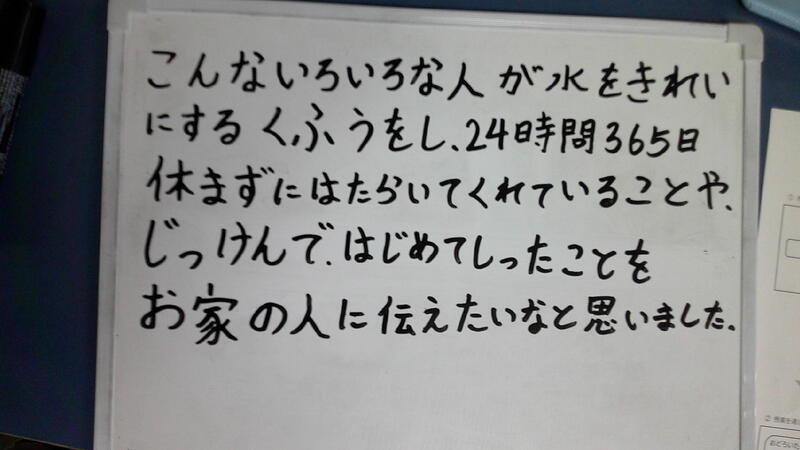 こんないろいろな人が水をきれい
にするくふうをし、24時間365日
休まずにはたらいてくれていることや、
じっけんで、はじめてしったことを
お家の人に伝えたいなと思いました。
おどろいた